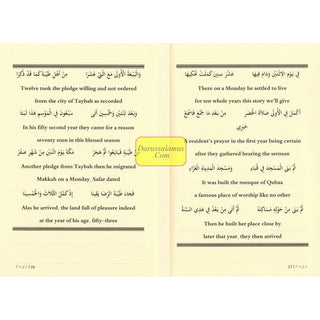 وَالْبَيْعَةُ الْأُولَى مَعَ اثْنَيْ عَشَرَا مِنْ أَهْلِ طَيْبَةَ كَمَا قَدْ ذُكِرَا
Twelve took the pledge willing and not ordered
from the city of Taybah as recorded
وَبَعْدَ ثِنْتَيْنِ وَخَمْسِينَ أَتَى سَبْعُونَ فِي الْمَوْسِمِ هَذَا ثَبَتَا
In his fifty second year they came for a reason
seventy men in this blessed season
مِنْ طَيْبَةٍ فَبَايَعُوا ثُمَّ هَجَرْ مَكَّةَ يَوْمَ اثْنَيْنِ مِنْ شَهْرِ صَفَرْ
Another pledge from Taybah then he migrated
Makkah on a Monday, Safar dated
فَجَاءَ طَيْبَةَ الرِّضَا يَقِينَا إِذْ كَمَّلَ الثَّلَاثَ وَالْخَمْسِينَا
Also he arrived, the land full of pleasure indeed
at the year of his age, fifty-three
Page | 26
فِي يَوْمِ الِاثْنَيْنِ وَدَامَ فِيهَا عَشْرَ سِنِينَ كَمَلَتْ نَحْكِيهَا
There on a Monday he settled to live
for ten whole years this story we'll give
أَكْمَلَ فِي الْأُولَى صَلَاةَ الْحَضَرِ مِنْ بَعْدِ مَا جَمَّعَ فَاسْمَعْ
خَبَرِي
A resident's prayer in the first year being certain
after they gathered hearing the sermon
ثُمَّ بَنَى الْمَسْجِدَ فِي قُبَاءِ وَمَسْجِدَ الْمَدِينَةِ الْغَرَّاءِ
It was built the mosque of Qubaa
a famous place of worship like no other
ثُمَّ بَنَى مِنْ حَوْلِهِ مَسَاكِنَهْ ثُمَّ أَتَى مِنْ بَعْدُ فِي هَذِي السَّنَهْ
Then he built her place close by
later that year, they then arrived
27 | Page
Darussalamus
.Com